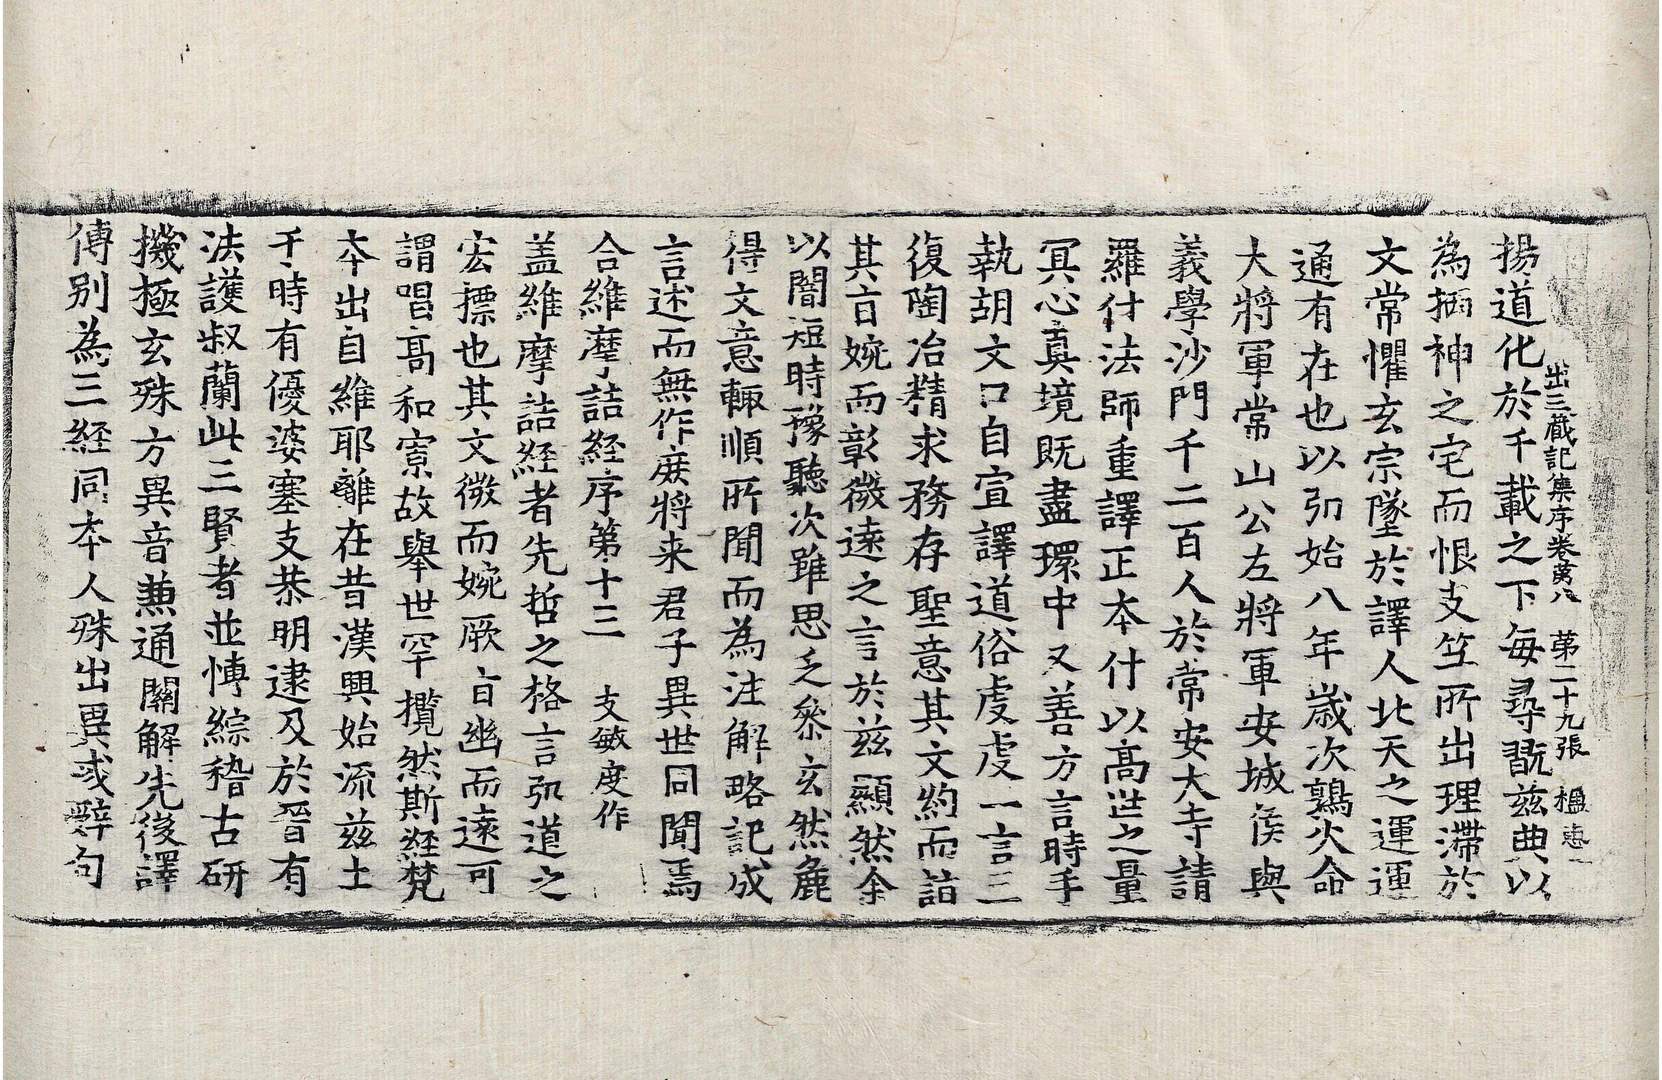 出三藏記集序卷第八 第二十九張
揚道化於千載之下每尋翫茲典以
為栖神之宅而恨支竺所出理滯於
文常懼玄宗墜於譯人北天之運運
通有在也以弘始八年歲次鶉火命
大將軍常山公左將軍安城侯與
義學沙門千二百人於常安大寺請
羅什法師重譯正本什以高世之量
冥心真境既盡環中又善方言時手
執胡文口自宣譯道俗虔虔一言三
復陶冶精求務存聖意其文約而詣
其旨婉而彰微遠之言於茲顯然余
以闇短時豫聽次雖思乏參玄然麁
得文意輒順所聞而為注解略記成
言述而無作庶將来君子異世同聞焉
合維摩詰経序第十三 支敏度作
盖維摩詰経者先哲之格言弘道之
宏摽也其文微而婉厥旨幽而遠可
謂唱高和寡故舉世罕攬然斯経梵
本出自維耶離在昔漢興始流茲土
于時有優婆塞支恭明逮及於晉有
法護叔蘭此三賢者並愽綜稽古研
機極玄殊方異音兼通關解先後譯
傳別為三経同本人殊出異或辭句